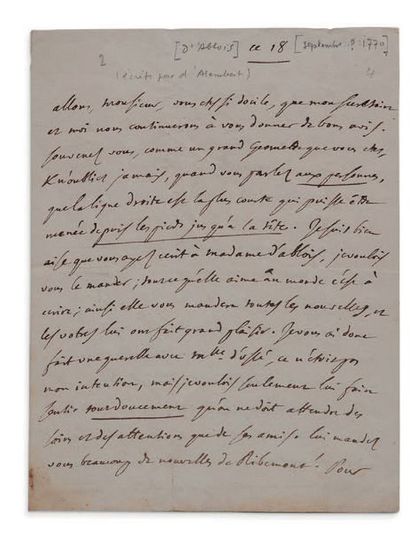 [D'Ablois] ce 18 [septembre ? 1770]
2 (écrite par d'Alembert) 4
allons, monsieur, vous etes si docile, que mon secretaire
et moi nous continuerons à vous donner de bons avis.
souvenez vous, comme un grand Geometre que vous etes,
& n'oubliez jamais, quand vous parlez aux personnes,
que la ligne droite est la plus courte qui puisse être
menée depuis les pieds jusqu'à la tête. Je suis bien
aise que vous ayez ecrit à madame d'ablois, je voulois
vous le mander; tout ce qu'elle aime au monde c'est à
ecrire; ainsi elle vous mandera toutes les nouvelles, et
les votres lui ont fait grand plaisir. Je vous ai donc
fait une querelle avec mlle d'ussé, ce n'étoit pas
mon intention, mais je voulois seulement lui faire
sentir tout doucement qu'on ne doit attendre des
soins et des attentions que de ses amis. lui mandez
vous beaucoup de nouvelles de Ribemont? Pour